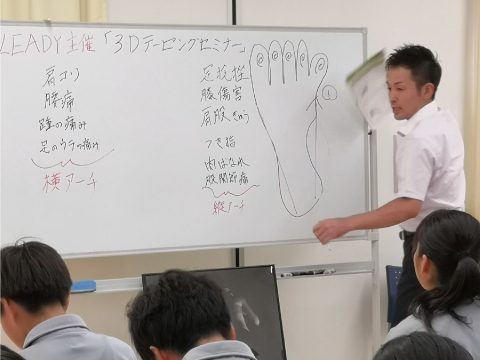 LEADY主催「3Dテーピングセミナー」
肩コリ
膝痛
踵の痛み
足のウラの痛み
横アーチ
足捻挫
膝傷害
つき指
肉ばなれ
股関節痛
縦アーチ
①